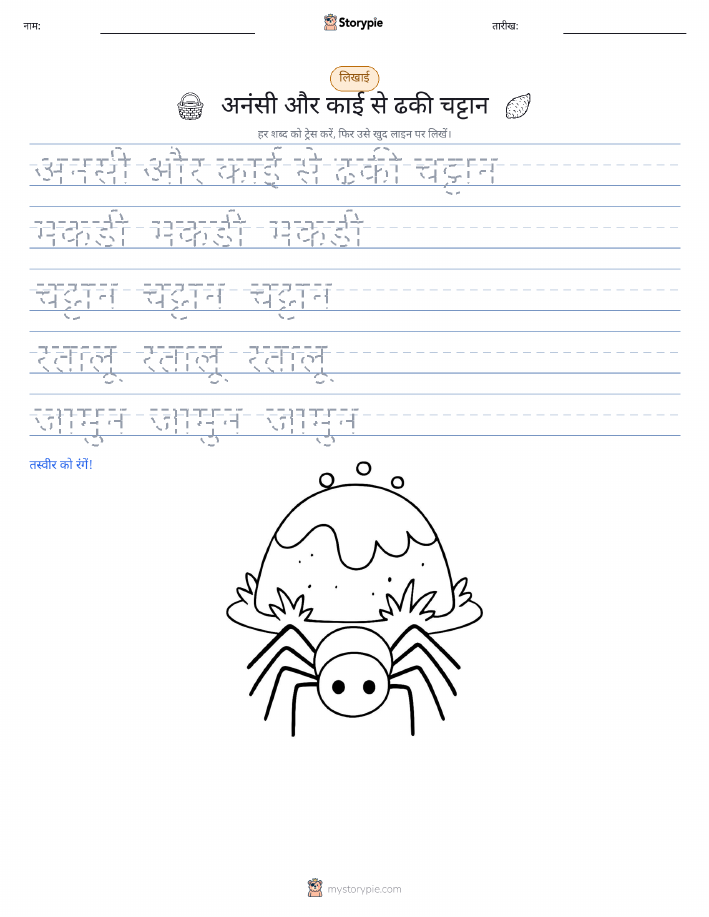 नाम:
Storypie
तारीख:
लिखाई
अनंसी और काई से ढकी चट्टान
हर शब्द को ट्रेस करें, फिर उसे खुद लाइन पर लिखें।
अनंसी और काई से ढकी चट्टान
मकड़ी मकड़ी मकड़ी
चट्टान चट्टान चट्टान
रतालू रतालू रतालू
जामुन जामुन जामुन
तस्वीर को रंगें!
mystorypie.com